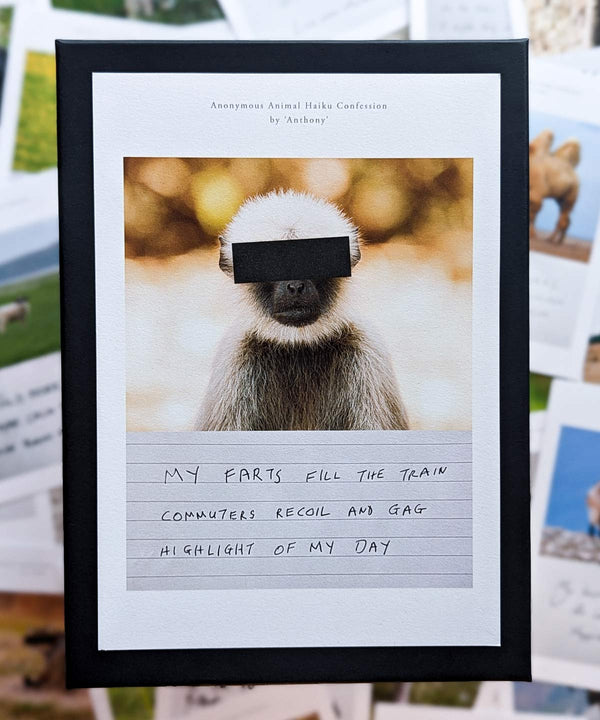 Anonymous Animal Haiku Confession
by 'Anthony'
MY FARTS FILL THE TRAIN
COMMUTERS RECOIL AND GAG
HIGHLIGHT OF MY DAY